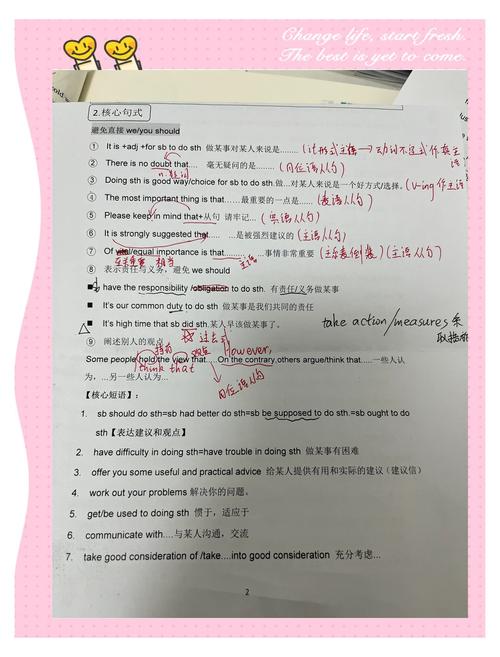 Change life, start fresh.
The best is yet to come.
2.核心句式
避免直接 we/you should
① It is +adj +for sb to do sth 做某事对某人来说是........ (it形式主语→动词不定式作真主语
② There is no doubt that.... 毫无疑问的是....... (同位语从句)
③ Doing sth is good way/choice for sb to do sth.做...对某人来说是一个好方式/选择。(v-ing作主语
④ The most important thing is that......最重要的一点是...... (表语从句)
⑤ Please keep in mind that+从句 请牢记... (宾语从句)
⑥ It is strongly suggested that... ...是被强烈建议的 (主语从句)
⑦ Of vital/equal importance is that... ...事情非常重要 (主系表倒装)(主语从句)
至关重要 相当 主语
⑧ 表示责任与义务，避免 we should
have the responsibility /obligation to do sth. 有责任/义务做某事
It's our common duty to do sth 做某事是我们共同的责任
It's high time that sb did sth.某人早该做某事了。
take action/measures 采取措施
过去式
⑨ 阐述别人的观点
持有 观点 However,
Some people hold the view that....On the contrary,others argue/think that.....一些人认
think that
为，...另一些人认为...
同位语从句
【核心短语】：
1. sb should do sth=sb had better do sth=sb be supposed to do sth.=sb ought to do
sth【表达建议和观点】
2. have difficulty in doing sth=have trouble in doing sth 做某事有困难
3. offer you some useful and practical advice 给某人提供有用和实际的建议（建议信）
4. work out your problems 解决你的问题。
5. get/be used to doing sth 惯于，适应于
6. communicate with....与某人沟通，交流
7. take good consideration of /take....into good consideration 充分考虑...
2